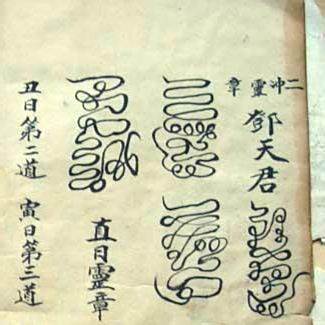 二冲靈章
鄧天君
直日靈章
丑日第二道 寅日第三道